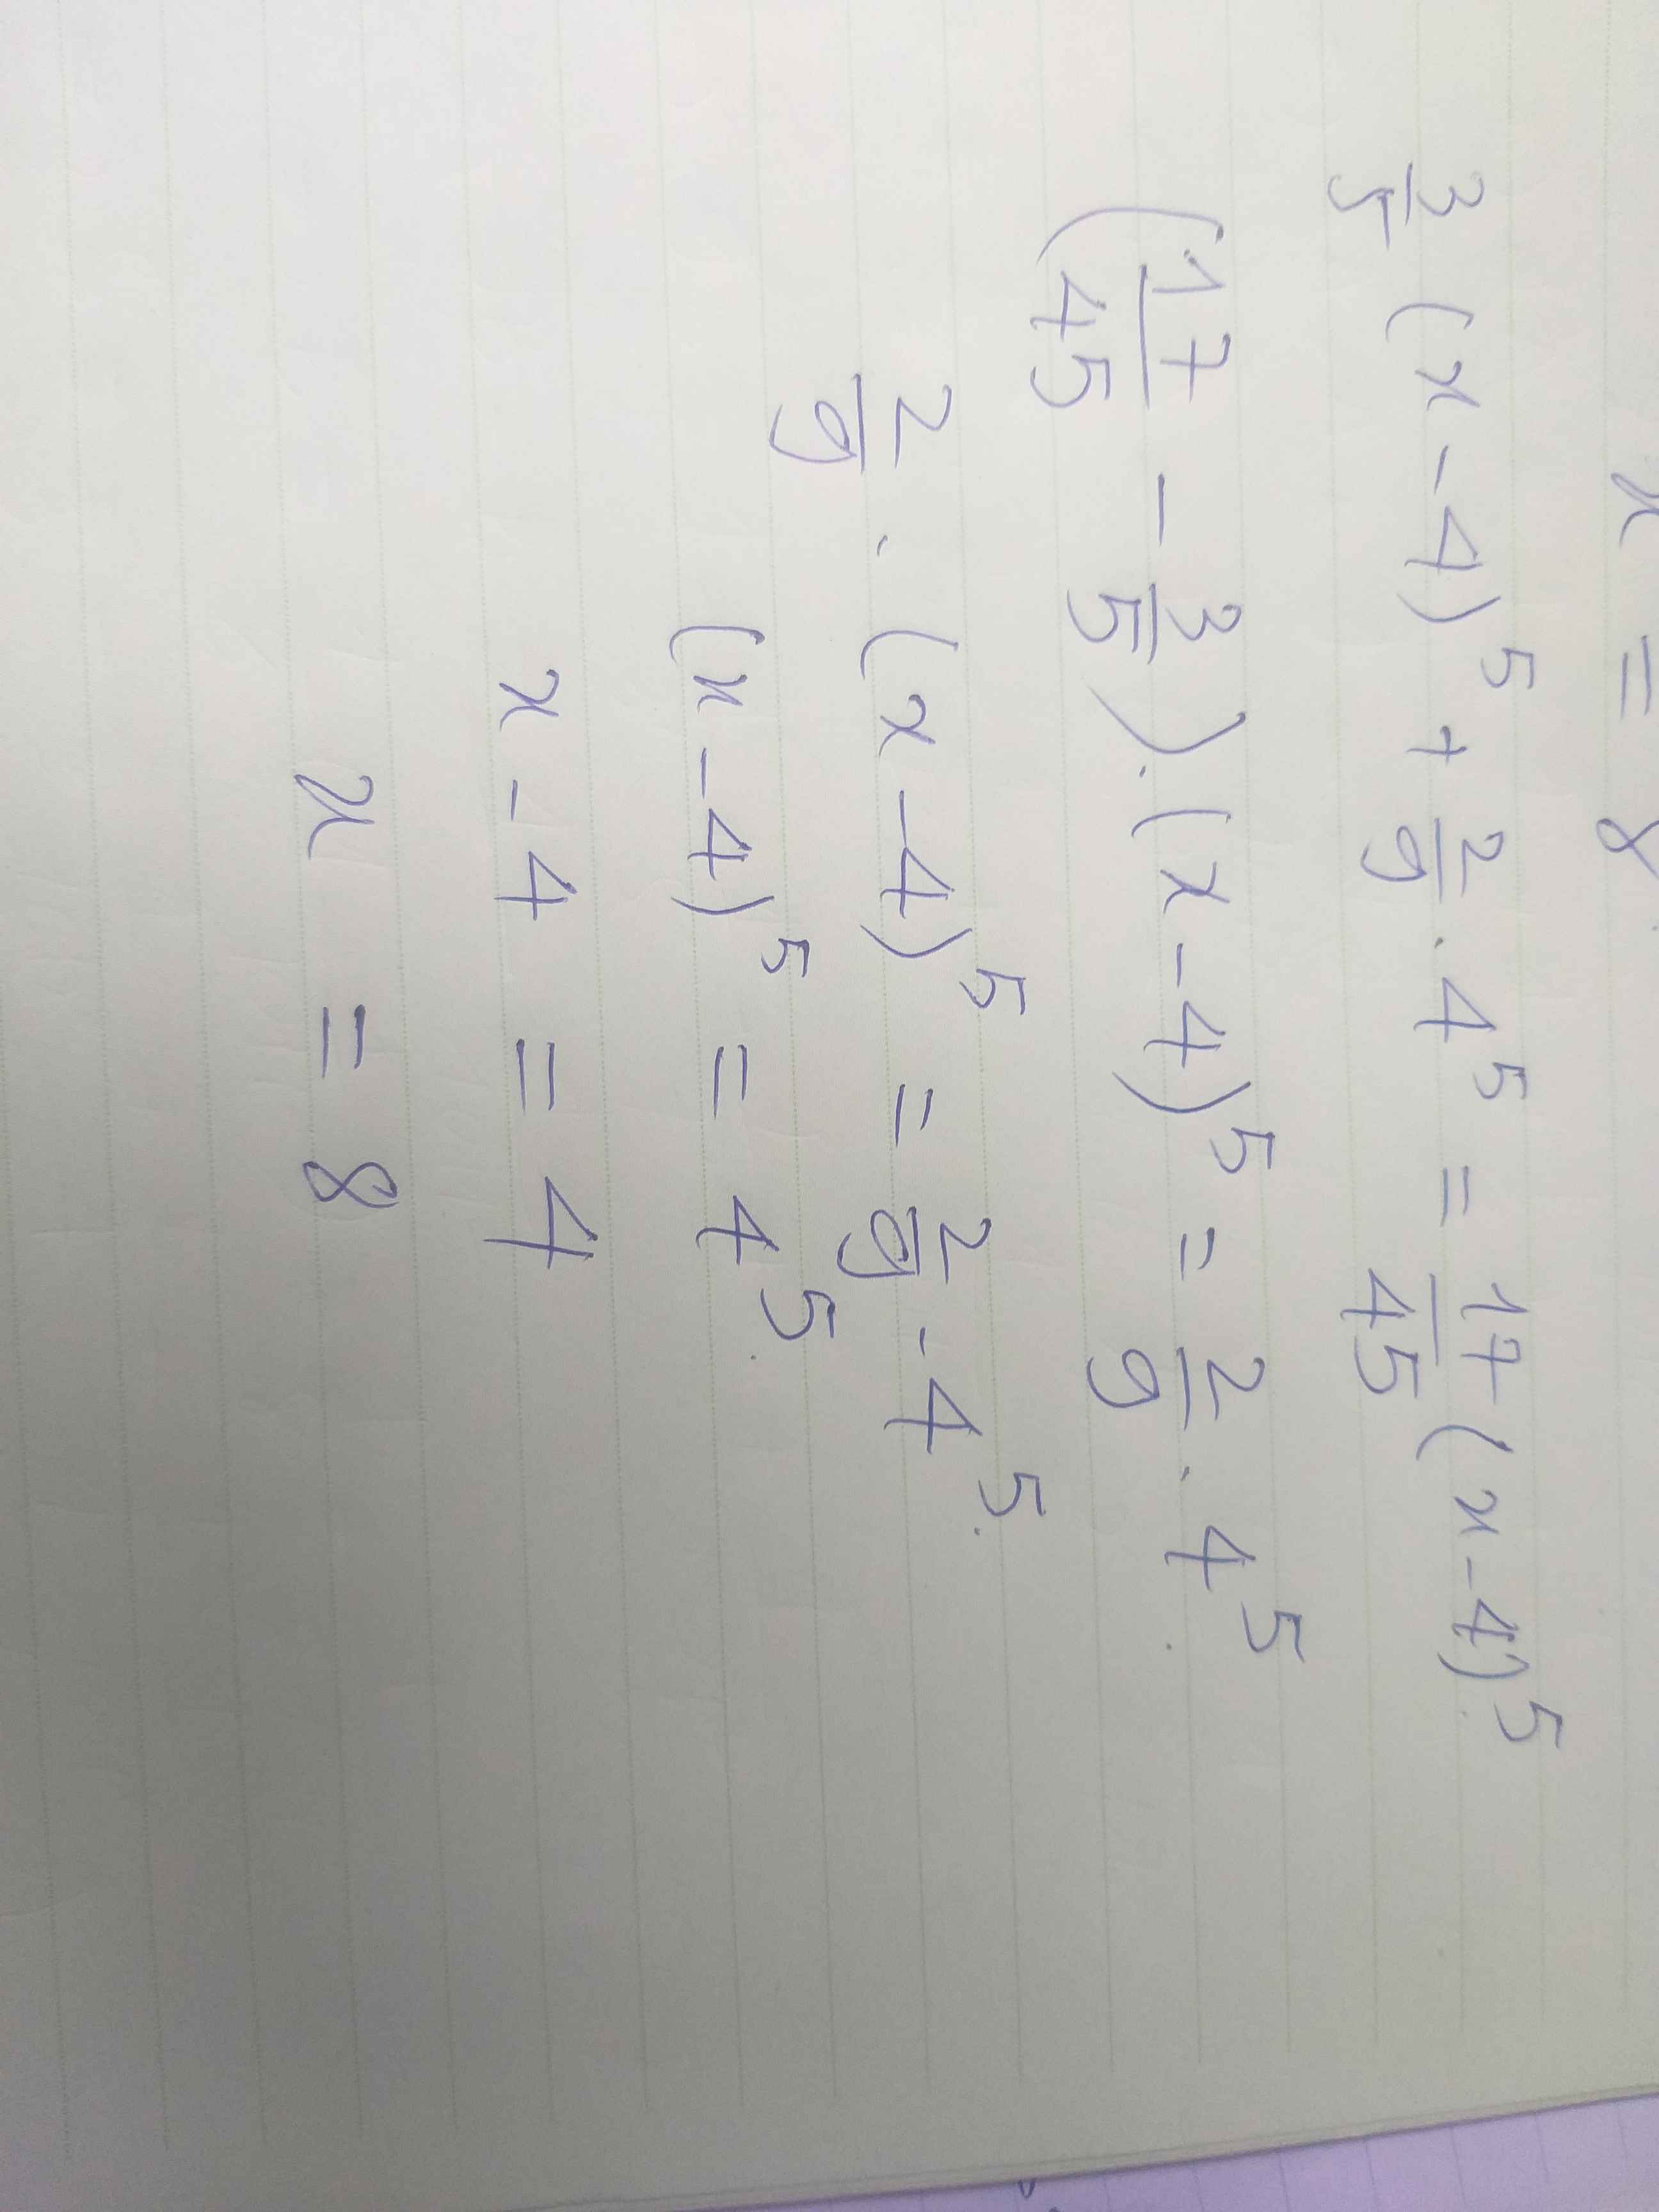 x = 8
3/5 (x - 4)⁵ + 2/9 . 4⁵ = 17/45 (x - 4)⁵
(17/45 - 3/5) . (x - 4)⁵ = 2/9 . 4⁵
2/9 . (x - 4)⁵ = 2/9 - 4⁵.
(x - 4)⁵ = 4⁵.
x - 4 = 4
x = 8